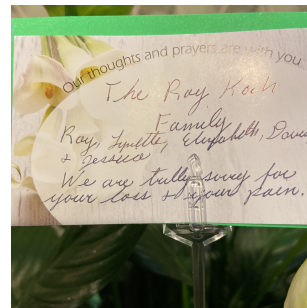 Our thoughts and prayers are with you
The Ray Koch
Family
Ray, Lynette, Elizabeth,
+ Jessica
We are truly sorry for
your loss + your pain.